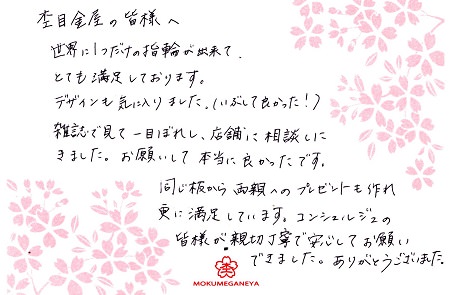 杢目金屋の皆様へ
世界に1つだけの指輪が出来て、
とても満足しております。
デザインも気に入りました。(いぶして良かった!)
雑誌で見て一目ぼれし、店舗に相談しに
きました。お願いして本当に良かったです。
同じ板から両親へのプレゼントも作れ
更に満足しています。コンシェルジュの
皆様が親切丁寧で安心してお願い
できました。ありがとうございました。
MOKUMEGANEYA